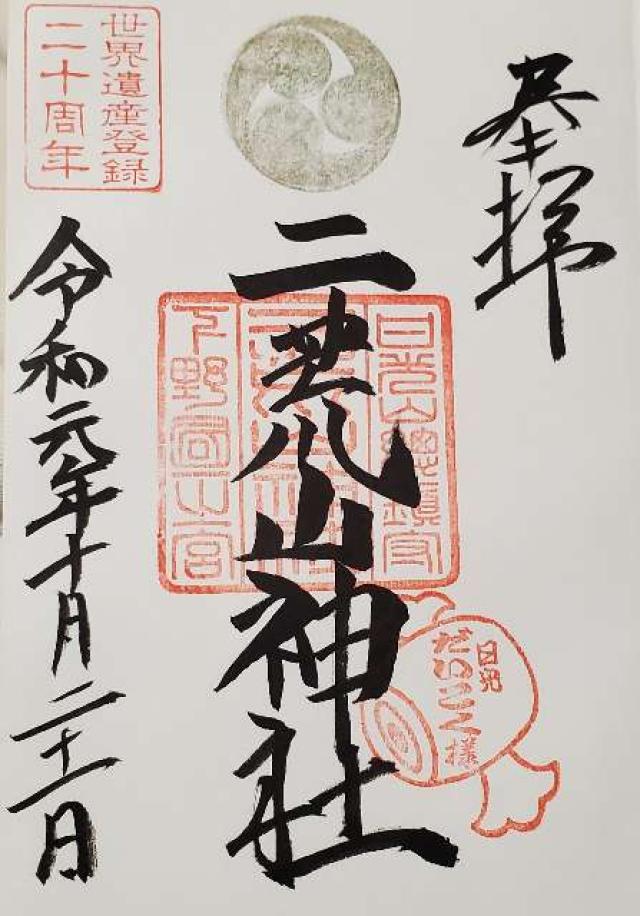 奉拝
二荒山神社
令和元年十月二十一日
世界遺産登録
二十周年
日光山總鎮守
下野國一宮
日光
だいこく様